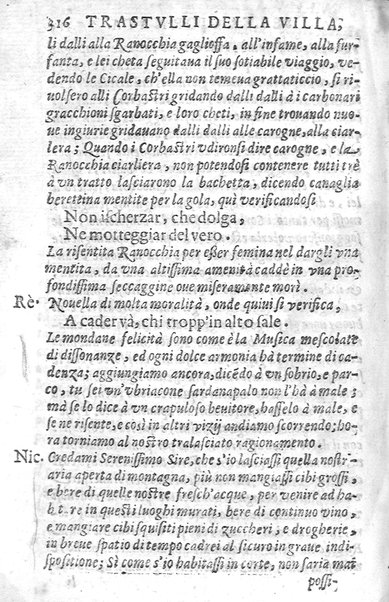 316 TRASTVLLI DELLA VILLA,
li dalli alla Ranocchia gaglioffa, all'infame, alla fur-
fanta, e lei cheta seguitaua il suo sotiabile viaggio, ve-
dendo le Cicale, ch'ella non temeua grattaticcio, si ri-
uolsero alli Corbastri gridando dalli dalli à i carbonari
gracchioni sgarbati, e loro cheti, in fine trouando nuo-
ue ingiurie gridauano dalli dalli alle carogne, alla ciar-
lera; Quando i Corbastri vdironsi dire carogne, e la
Ranocchia ciarliera, non potendosi contenere tutti trè
à vn tratto lasciarono la bachetta, dicendo canaglia
berettina mentite per la gola, quì verificandosi
Non ischerzar, che dolga,
Ne motteggiar del vero.
La risentita Ranocchia per esser femina nel dargli vna
mentita, da vna altissima amenità caddè in vna pro-
fondissima seccaggine oue miseramente morì.
Rè. Nouella di molta moralità, onde quiui si verifica,
A cader và, chi tropp'in alto sale.
Le mondane felicità sono come è la Musica mescolate
di dissonanze, ed ogni dolce armonia hà termine di ca-
denza; aggiungiamo ancora, dicẽdo à vn sobrio, e par-
co, tu sei vn'vbriacone sardanapalo non l'hà à male;
mà se lo dice à vn crapuloso beuitore, hassello à male, e
se ne risente, e così in altri vizij andiamo scorrendo; ho-
ra torniamo al nostro tralasciato ragionamento.
Nic. Credami Serenissimo Sire, che s'io lasciassi quella nostr'-
aria aperta di montagna, più non mangiassi cibi grossi,
e bere di quelle nostre fresch'acque, per venire ad ha-
bitare in questi luoghi murati, bere di continuo vino,
e mangiare cibi squisiti pieni di zuccheri, e drogherie,
in breue spatio di tempo cadrei al sicuro in graue indi-
sposizione; Sì come s'io habitassi in corte, non saria mai
possi-